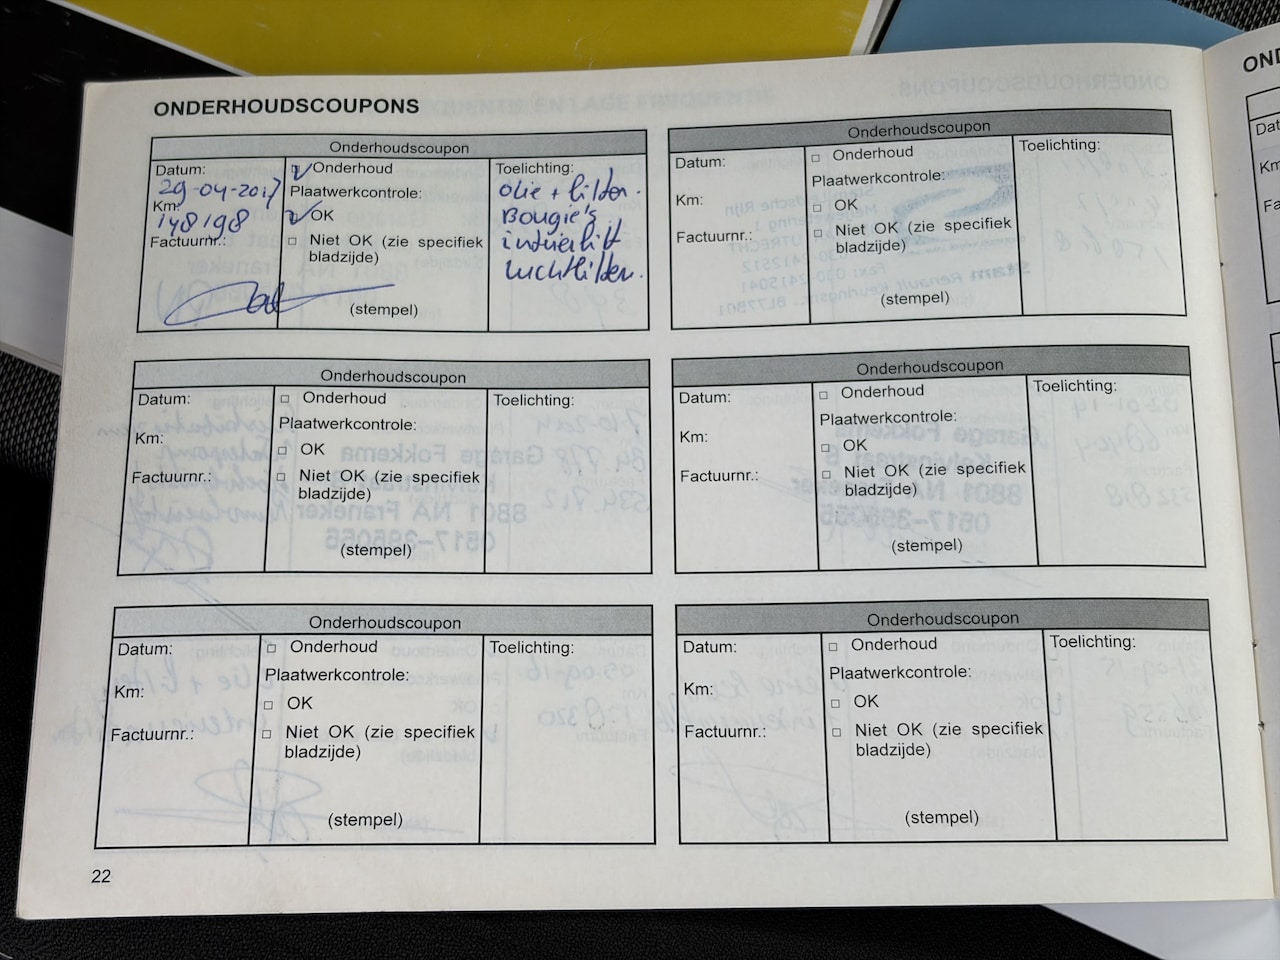 ONDERHOUDSCOUPONS
Onderhoudscoupon
Datum:
29-04-2017
Km:
148198
Factuurnr.:
Onderhoud
Plaatwerkcontrole:
OK
Niet OK (zie specifiek
bladzijde)
(stempel)
Toelichting:
Olie + filter.
Bougie's
interieurfilt
luchtfilter.
Onderhoudscoupon
Datum:
Km:
Factuurnr.:
Onderhoud
Plaatwerkcontrole:
OK
Niet OK (zie specifiek
bladzijde)
(stempel)
Toelichting:
Onderhoudscoupon
Datum:
Km:
Factuurnr.:
Onderhoud
Plaatwerkcontrole:
OK
Niet OK (zie specifiek
bladzijde)
(stempel)
Toelichting:
Onderhoudscoupon
Datum:
Km:
Factuurnr.:
Onderhoud
Plaatwerkcontrole:
OK
Niet OK (zie specifiek
bladzijde)
(stempel)
Toelichting:
Onderhoudscoupon
Datum:
Km:
Factuurnr.:
Onderhoud
Plaatwerkcontrole:
OK
Niet OK (zie specifiek
bladzijde)
(stempel)
Toelichting:
Onderhoudscoupon
Datum:
Km:
Factuurnr.:
Onderhoud
Plaatwerkcontrole:
OK
Niet OK (zie specifiek
bladzijde)
(stempel)
Toelichting:
22